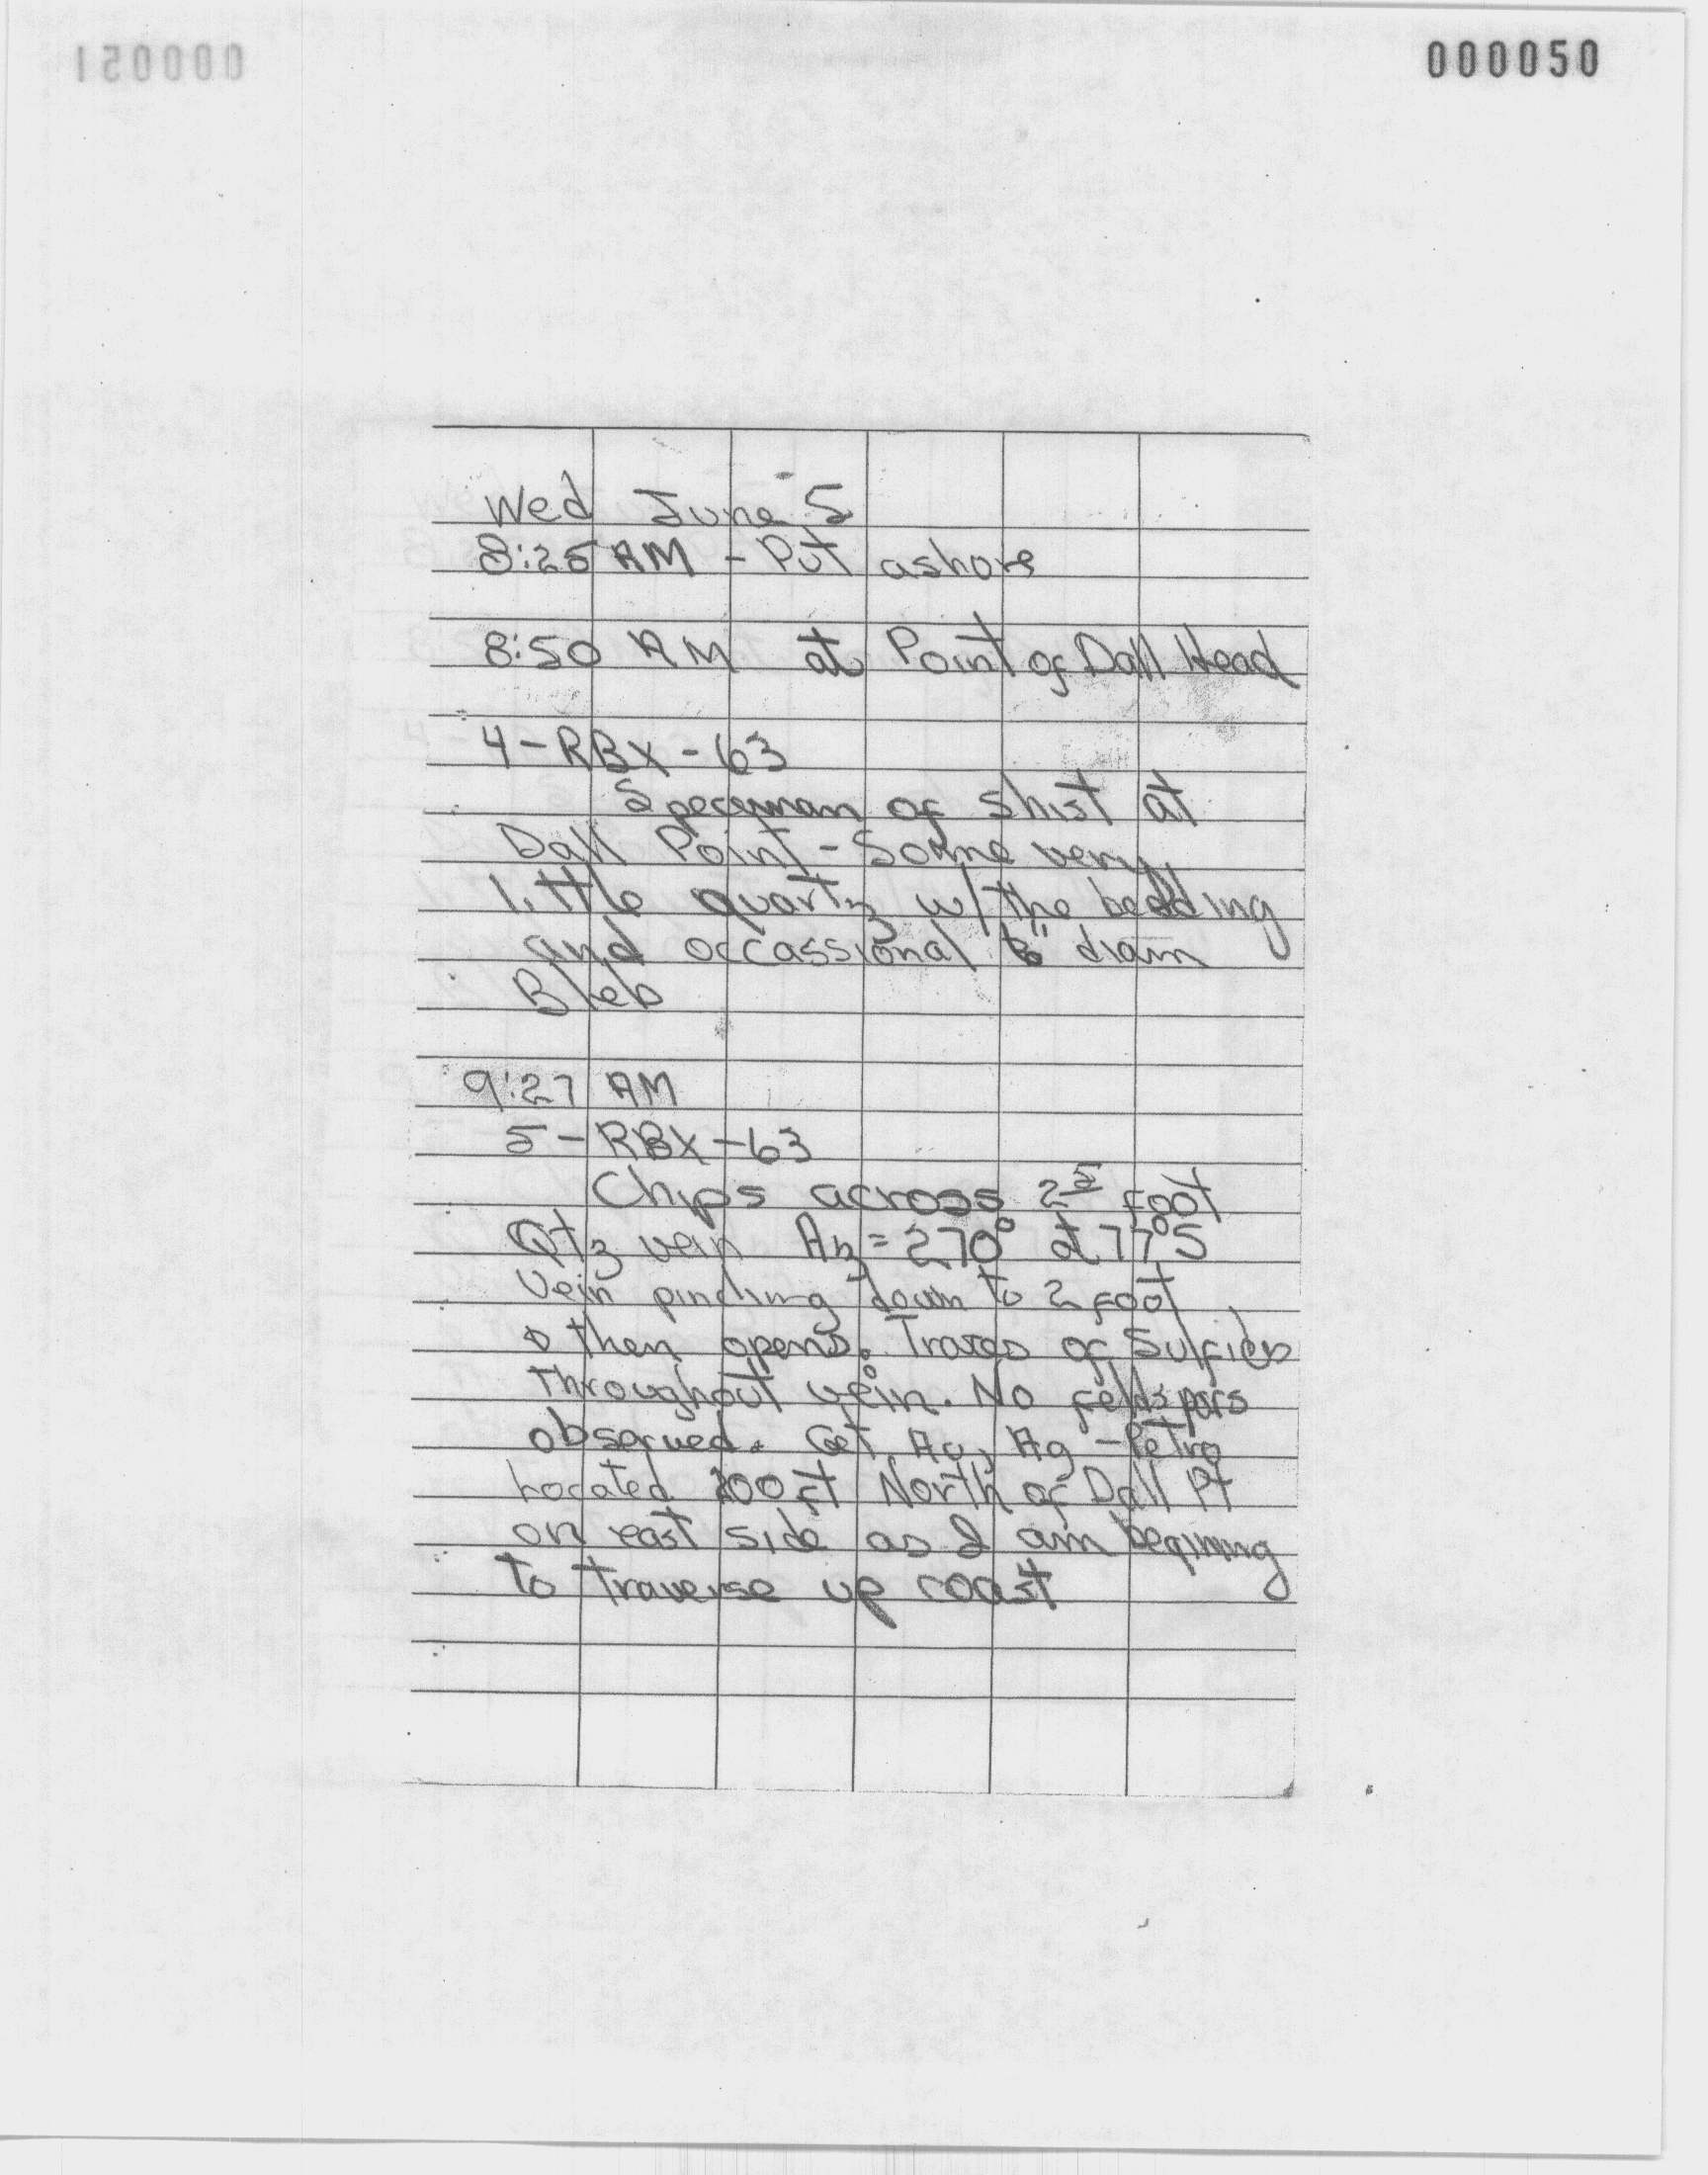 000050
Wed June 5
8:25 AM - Put ashore
8:50 AM at Point of Dall Head
4-RBX-63
Specyman of shist at
Dall Point - Some very
little quartz w/ the bedding
and occassional diam
Bleb
9:27 AM
5-RBX-63
Chips across 2⁵ foot
Qtz vein Az=270° at 77°S
Vein pinching down to 2 foot
& then opens. Traces of Sulfides
Throughout vein. No feldspars
observed. Get Au, Ag - Petro
Located 200 ft North of Dall Pt
on east side as I am begining
to traverse up coast